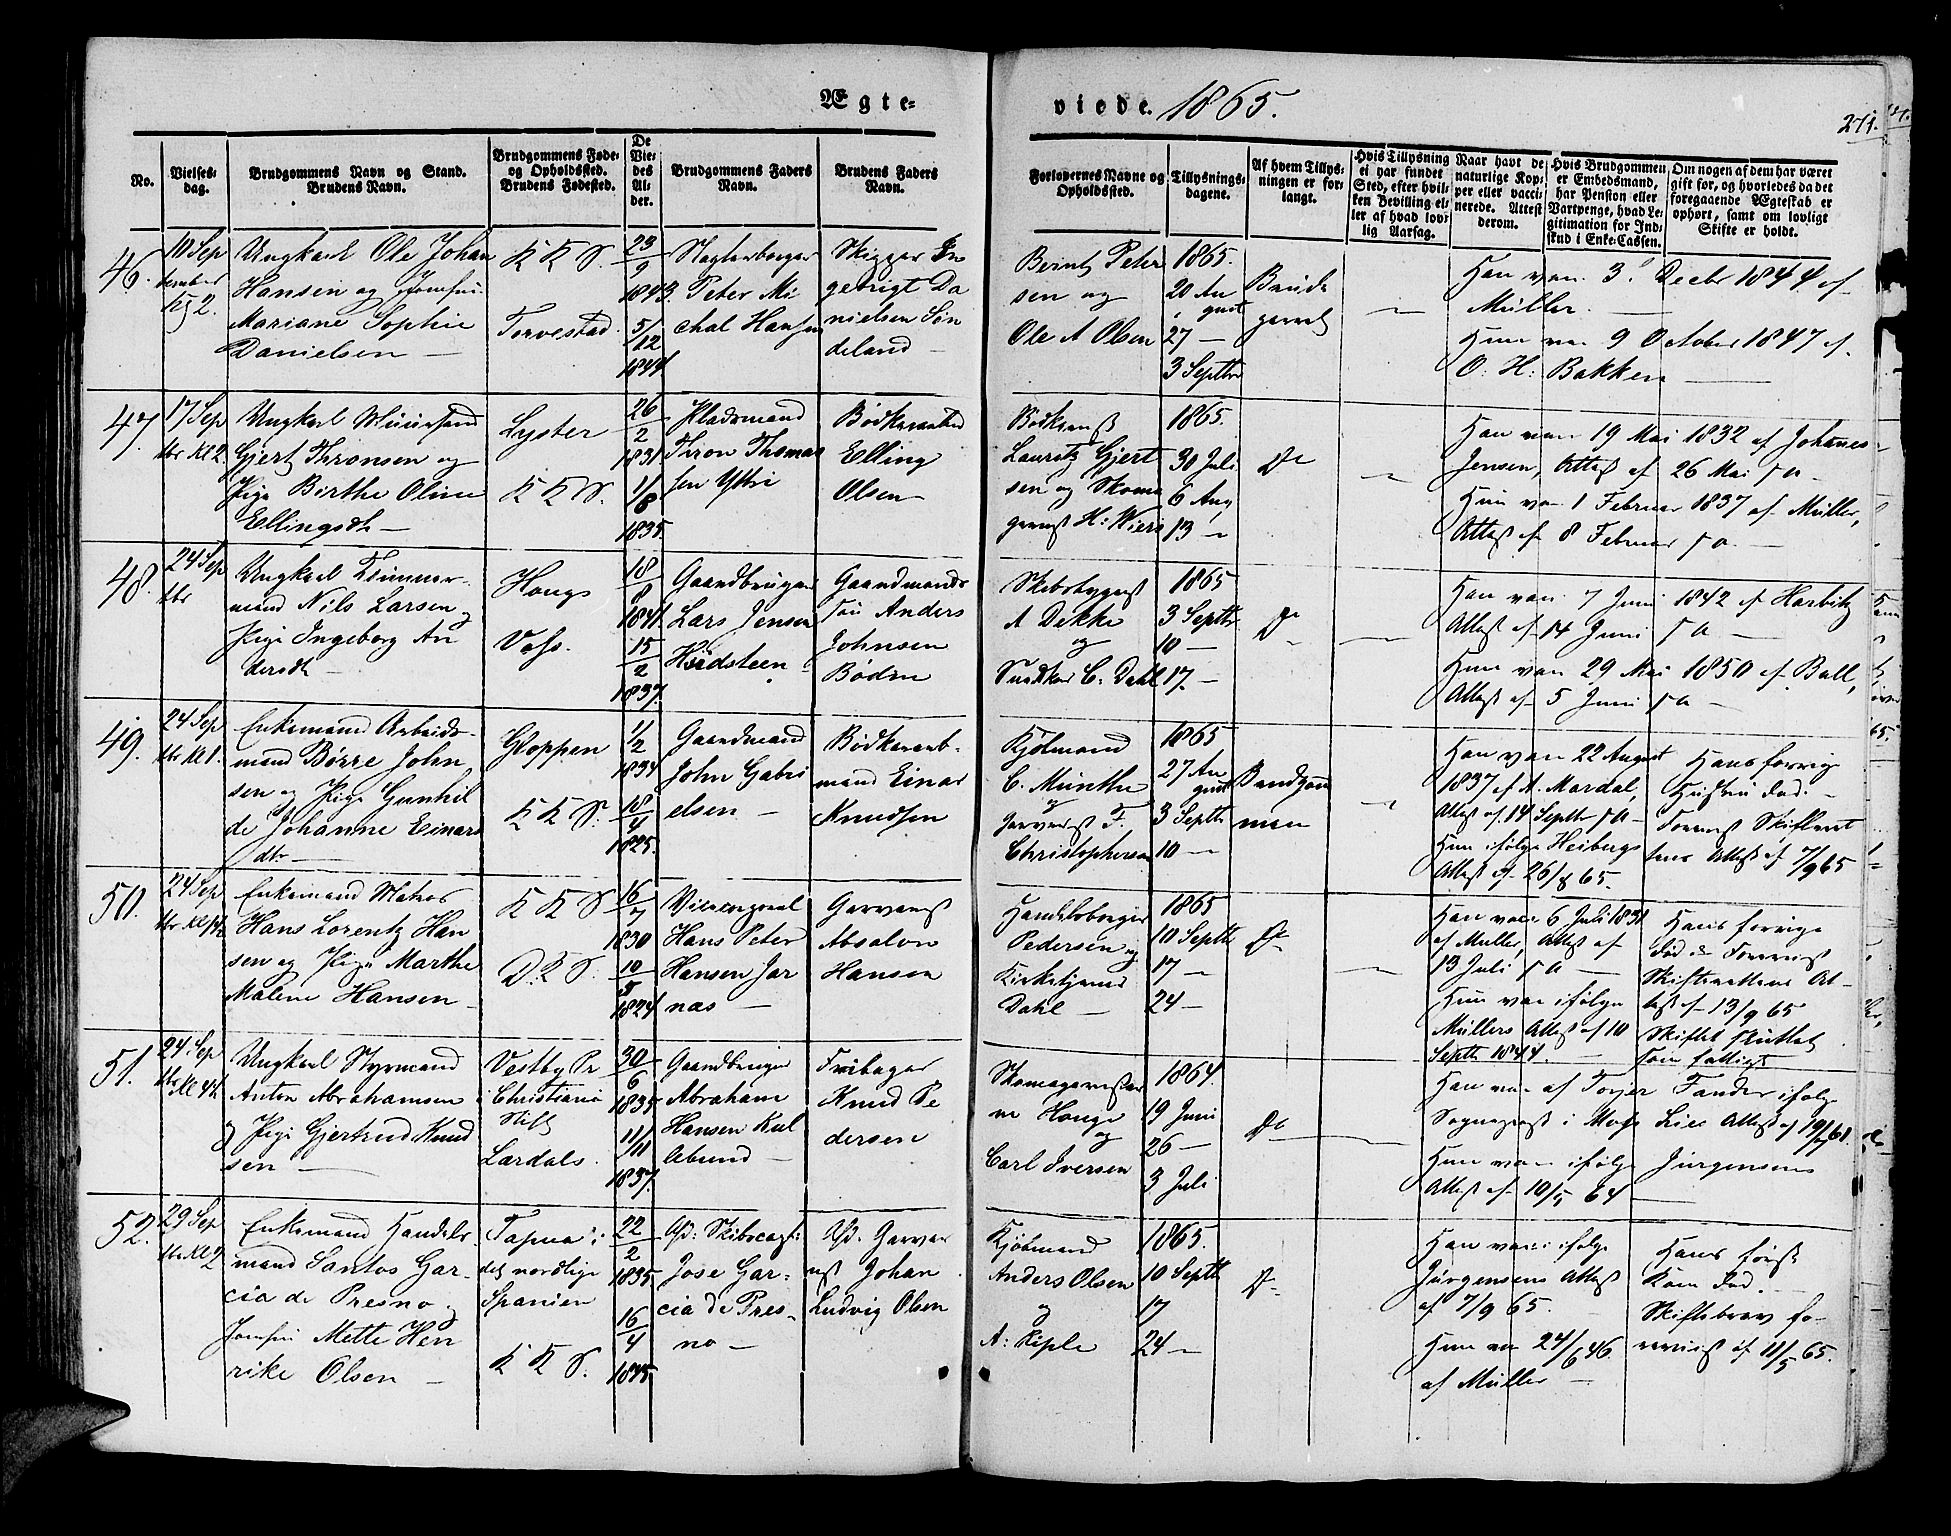 Ægte=
viede. 1865.
271.
No.
Vielses-
dag.
Brudgommens Navn og Stand.
Brudens Navn.
Brudgommens Føde-
og Opholdssted.
Brudens Fødested.
De
Vie-
des
Al-
der.
Brudgommens Faders
Navn.
Brudens Faders
Navn.
Forlovernes Navne og
Opholdssted.
Tillysnings-
dagene.
Af hvem Tillys-
ningen er for-
langt.
Hvis Tillysning
ei har fundet
Sted, efter hvil-
ken Bevilling el-
ler af hvad lov-
lig Aarsag.
Naar havt de
naturlige Kop-
per eller vacci-
nerede. Attest
derom.
Hvis Brudgommen
er Embedsmand,
har Pension eller
Vartpenge, hvad Le-
gitimation for Ind-
skud i Enke-Cassen.
Om nogen af dem har været
gift før, og hvorledes da det
foregaaende Ægteskab er
ophørt, samt om lovligt
Skifte er holdt.
46.
10 Sep
tember
Kl 2.
Ungkarl Ole Johan
Hansen og Jomfru
Mariane Sophie
Danielsen
K K S.
Torvestad
23/9
1843
5/12
1844
Peter Mi
chal Hansen
Danielsen Søn
deland
Bernt Peter
sen og
Ole A Olsen
1865.
20 Au
gust
27 —
3 Septbr
Brud
gommen
Han vac. 3 Decbr 1844 af
Müller.
Hun vac 9 October 1847 af
O: H: Bakken
47.
17 Sep
tbr Kl 2
Ungkarl Muursvend
Gjert Thronsen og
Pige Birthe Oline
Ellingsdtr
Lyster
K K S.
26/2
1831
11/8
1835.
Pladsmand
Tron Thomas
sen Yttri
Bødkersvend
Elling
Olsen
Bødkermst
Lauritz Gjert
sen og Skoma
germst H: Wiers
1865.
30 Juli
6 Aug
13 —
Do
Han vac. 19 Mai 1832 af Johanes
Jensen, Attest af 26 Mai s a
Hun vac. 1 Februar 1837 af Müller,
Attest af 8 Februar s a
48.
24 Sep
tbr
Ungkarl Tømmer-
mand Nils Larsen og
Pige Ingeborg An
dersdtr
Hougs
Voss.
18/8
1841.
15/2
1837.
Gaardbruger
Lars Jensen
Hjedsteen
Gaardmands
søn Anders
Johnsen
Bøden
Skibsbygmst
A Dekke
og
Snedker C. Dahl
1865
3 Septbr
10 —
17. —
Do
Han vac. 7 Juni 1842 af Harbitz
Attest af 14 Juni s a
Hun vac 29 Mai 1850 af Ball,
Attest af 5 Juni s a
49.
24 Sep
tbr Kl 1.
Enkemand Arbeids-
mand Børre John
sen og Pige Gunhil
de Johanne Einars
dtr
Gloppen
K K S.
1/2
1834
18/4
1825.
Gaardmand
John Gabri
elsen
Bødkerarb-
mand Einar
Knudsen
Kjøbmand
C. Münthe
og
Garvermst F.
Christophersen
1865
27 Au
gust
3 Septbr
10 —
Brudgom
men
Han vac. 22 August
1837 af A. Mardal,
Attest af 14 Septbr s a
Hun ifølge Heibergs
Attest af 26/8 65.
Hans forrige
Hustru død.
Foreviist Skifteret
tens Attest af 7/9 65
50.
24 Sep
tbr Kl 1½
Enkemand Matros
Hans Lorentz Han
sen og Pige Marthe
Malene Hansen
K K S
D. K S.
16/7
1830
10/5
1824
Hans Peter
Hansen Jar
næs
Garvermst
Absalon
Hansen
Handelsborger
Pedersen og
Kirketjener
Dahl
1865
10 Septbr
17 —
24 —
Do
Han vac 6 Juli 1831
af Müller, Attest af
13 Juli s a
Hun vac ifølge
Müllers Attest af 10
Septbr 1844.
Hans forrige
død. Foreviist
Skifterettens At-
test af 13/9 65
Skiftet sluttet
som fattigt
51.
24 Sep
tbr Kl 4½
Ungkarl Styrmand
Anton Abrahamsen
og Pige Gjertrud Knud
sen
Vestby Pr
i Christiania
Stift
Lærdals.
30/6
1835
11/11
1837.
Gaardbruger
Abraham
Hansen Kul
Abund
Knud Pe
dersen
Skomagermester
ne Houge
og
Carl Iversen
1864.
19 Juni
26 —
3 Juli
Do
Han vac af Torjer Tander ifølge
Sognepræst i Moss Lies Attest af 19/7 61.
Hun vac ifølge Jürgensens
Attest af 10/5 64
52.
29 Sep
tbr Kl 2
Enkemand Handels-
mand Santos Gar-
cia de Presno og
Jomfru Mette Hen
rike Olsen
Tapia i
det nordlige
Spanien
K K S.
22/2
1835.
16/4
1845.
Jose Gar-
cia de Pres-
no
Afd. Garver
mst Johan
Ludvig Olsen
Kjøbmand
Anders Olsen
og
A: Kiple
1865.
10 Septbr
17
24 —
Do
Han vacc ifølge
Jürgensens Attest
af 7/9 65.
Hun vac 24/6 46.
af Müller
Hans første
Kone død.
Skiftebrev fo-
reviist af 11/5 65.